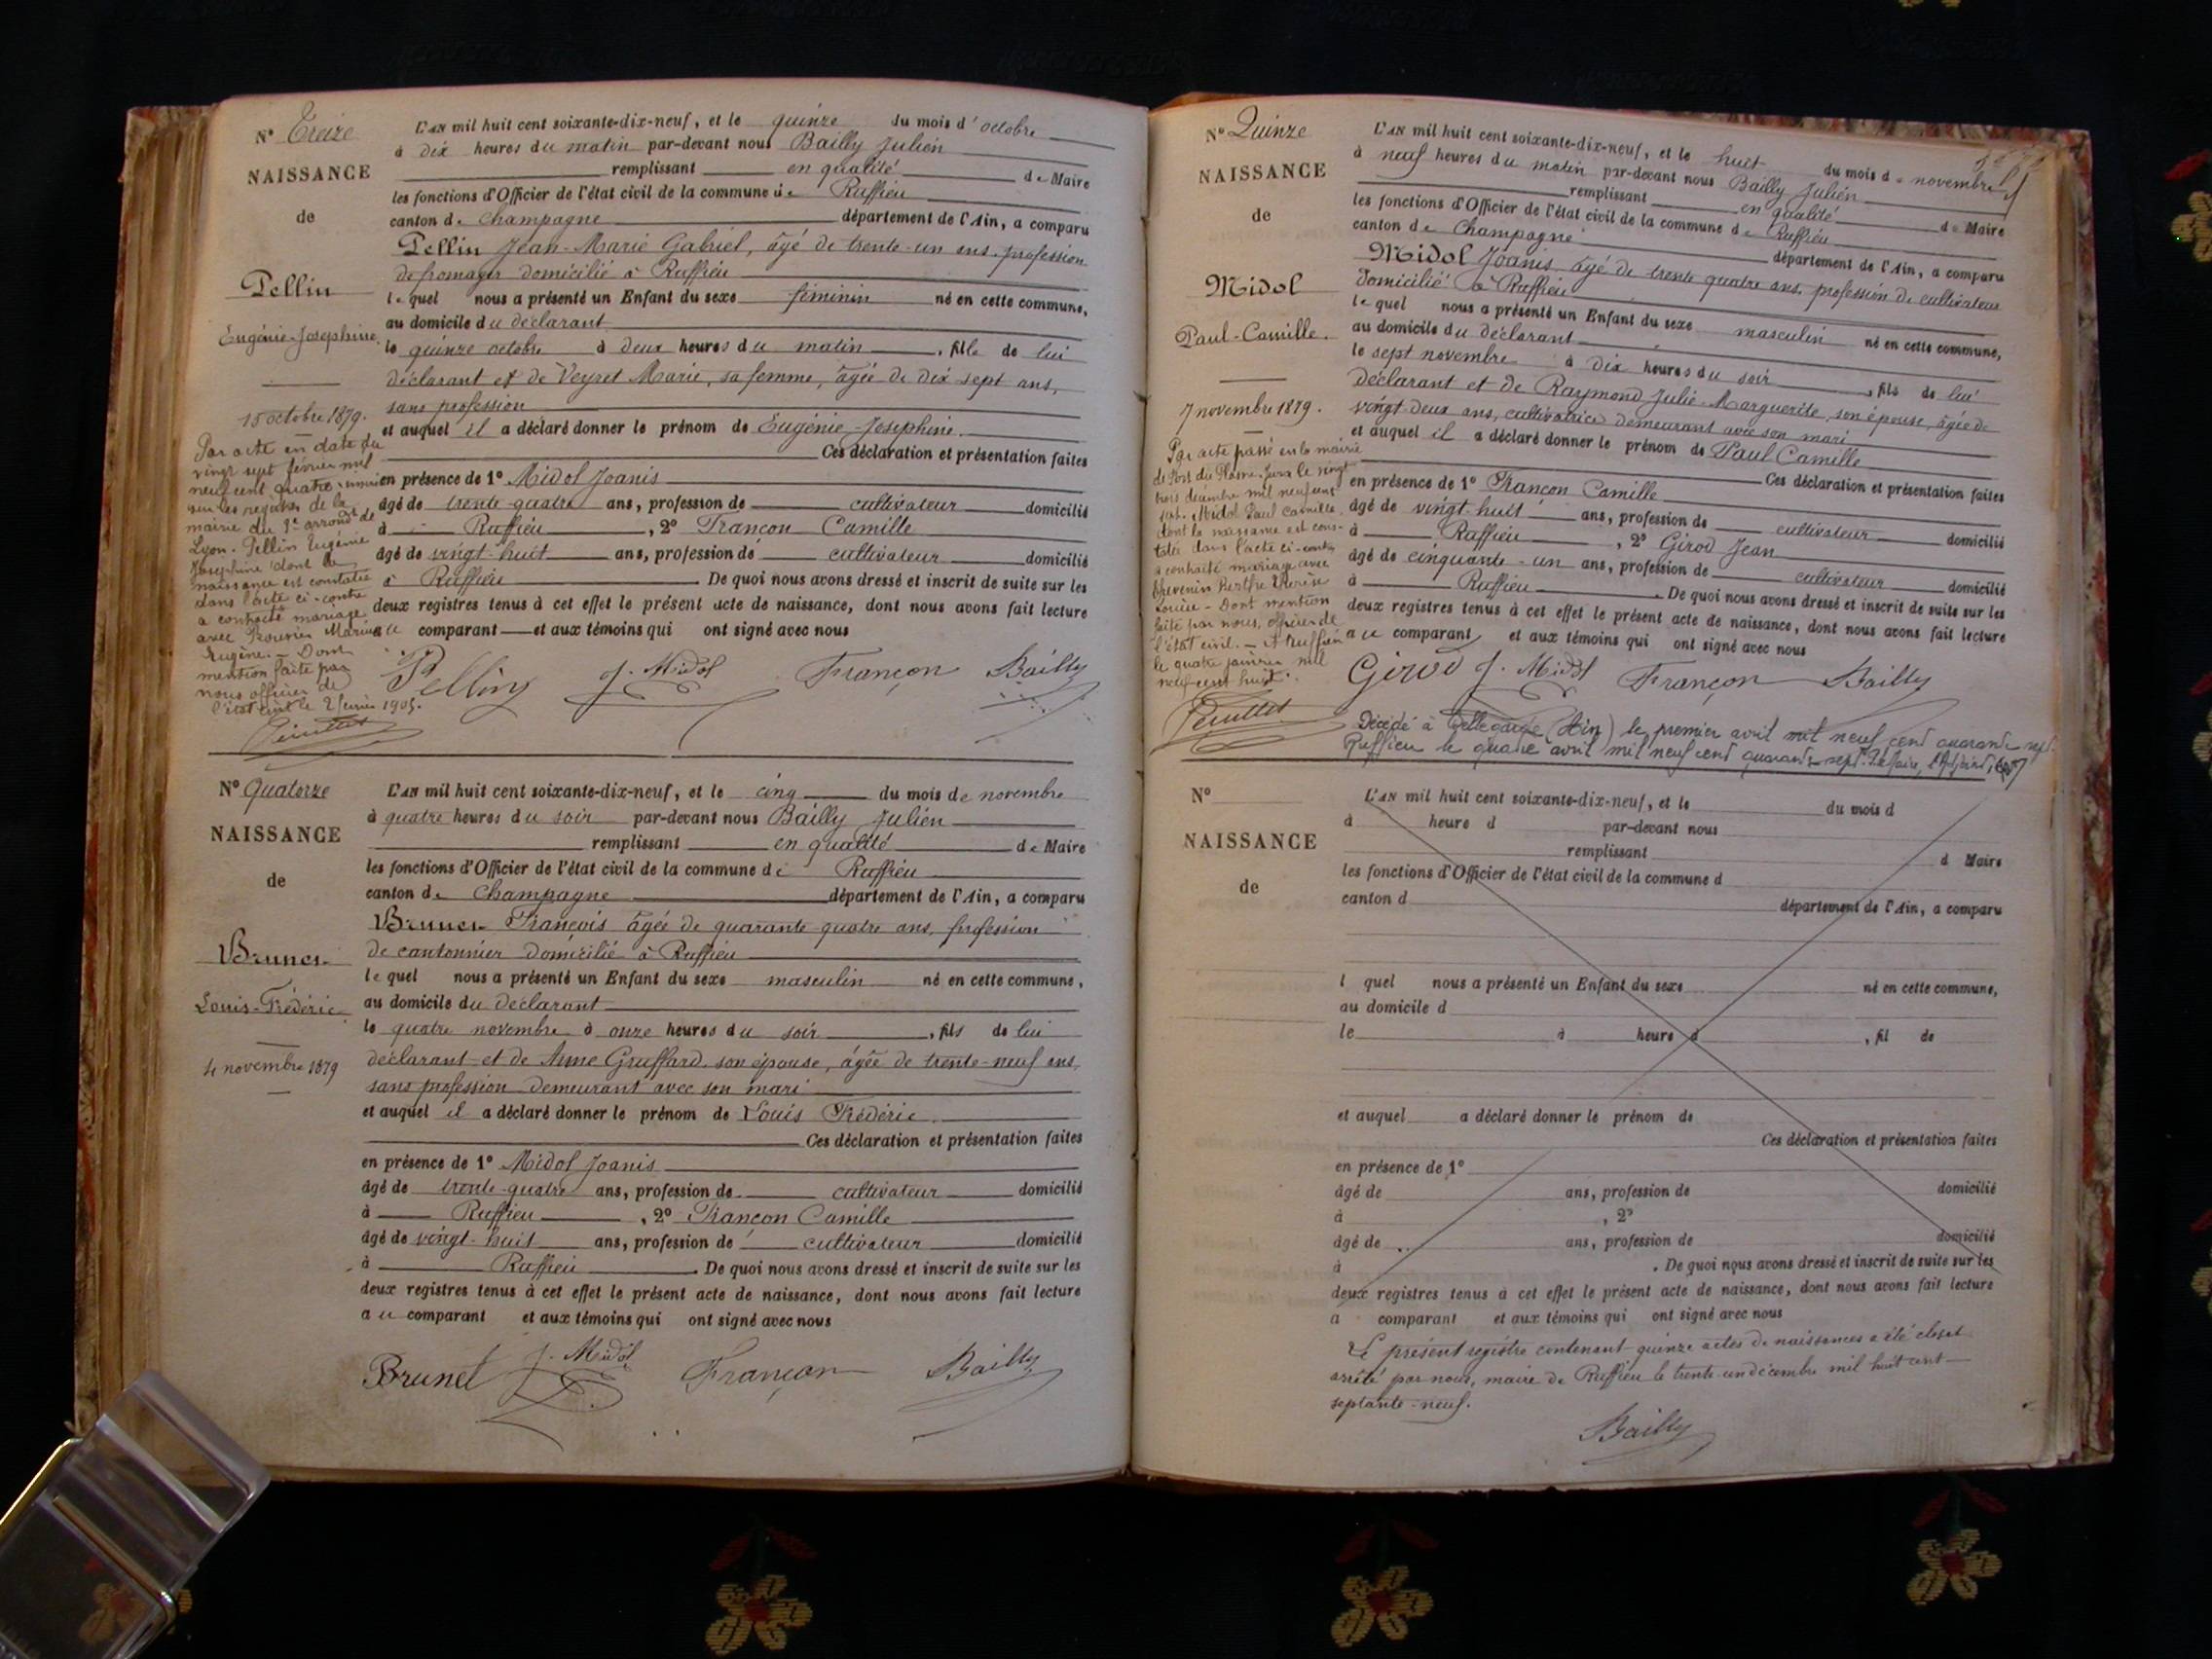 N° Treize
NAISSANCE
de
Pellin
Eugénie-Joséphine
15 octobre 1879.
Par acte en date du
vingt sept février mil
neuf cent quatre
sur les registres de la
mairie du 1er arrondt de
Lyon. Pellin Eugénie
Joséphine dont la
naissance est constatée
dans l'acte ci-contre
a contracté mariage
avec Marius
Eugène. - Dont
mention faite par
nous officier de
l'état civil le 2 1905.
L'AN mil huit cent soixante-dix-neuf, et le quinze du mois d'octobre
à dix heures du matin par-devant nous Bailly Julien
remplissant en qualité de Maire
les fonctions d'Officier de l'état civil de la commune de Ruffieu
canton de Champagne département de l'Ain, a comparu
Pellin Jean-Marie Gabriel, âgé de trente-un ans, profession
de fromager domicilié à Ruffieu
lequel nous a présenté un Enfant du sexe féminin né en cette commune,
au domicile du déclarant
le quinze octobre à deux heures du matin, fille de lui
déclarant et de Veyret Marie, sa femme, âgée de dix sept ans,
sans profession
et auquel il a déclaré donner le prénom de Eugénie-Joséphine
Ces déclaration et présentation faites
en présence de 1° Midol Joanis
âgé de trente-quatre ans, profession de cultivateur domicilié
à Ruffieu, 2° Françon Camille
âgé de vingt-huit ans, profession de cultivateur domicilié
à Ruffieu. De quoi nous avons dressé et inscrit de suite sur les
deux registres tenus à cet effet le présent acte de naissance, dont nous avons fait lecture
au comparant et aux témoins qui ont signé avec nous
Pellin J. Midol Françon Bailly
N° Quatorze
NAISSANCE
de
Brunet
Louis-Frédéric
4 novembre 1879
L'AN mil huit cent soixante-dix-neuf, et le cinq du mois de novembre
à quatre heures du soir par-devant nous Bailly Julien
remplissant en qualité de Maire
les fonctions d'Officier de l'état civil de la commune de Ruffieu
canton de Champagne département de l'Ain, a comparu
Brunet François âgée de quarante-quatre ans, profession
de cantonnier domicilié à Ruffieu
lequel nous a présenté un Enfant du sexe masculin né en cette commune,
au domicile du déclarant
le quatre novembre à onze heures du soir, fils de lui
déclarant et de Anne Gruffard, son épouse, âgée de trente-neuf ans,
sans profession demeurant avec son mari
et auquel il a déclaré donner le prénom de Louis Frédéric.
Ces déclaration et présentation faites
en présence de 1° Midol Joanis
âgé de trente-quatre ans, profession de cultivateur domicilié
à Ruffieu, 2° Françon Camille
âgé de vingt-huit ans, profession de cultivateur domicilié
à Ruffieu. De quoi nous avons dressé et inscrit de suite sur les
deux registres tenus à cet effet le présent acte de naissance, dont nous avons fait lecture
au comparant et aux témoins qui ont signé avec nous
Brunet J. Midol Françon Bailly
N° Quinze
NAISSANCE
de
Midol
Paul-Camille.
7 novembre 1879.
Par acte passé en la mairie
de Port du Jura le vingt
trois décembre mil neuf cent
sept. Midol Paul Camille
dont la naissance est cons-
tatée dans l'acte ci-contre
a contracté mariage avec
Thevenin Berthe
Louise - Dont mention
faite par nous, officier de
l'état civil. - A Ruffieu
le quatre janvier mil
neuf cent huit.
L'AN mil huit cent soixante-dix-neuf, et le huit du mois de novembre
à neuf heures du matin par-devant nous Bailly Julien
remplissant en qualité de Maire
les fonctions d'Officier de l'état civil de la commune de Ruffieu
canton de Champagne département de l'Ain, a comparu
Midol Joanis âgé de trente quatre ans, profession de cultivateur
domicilié à Ruffieu
lequel nous a présenté un Enfant du sexe masculin né en cette commune,
au domicile du déclarant
le sept novembre à dix heures du soir, fils de lui
déclarant et de Raymond Julie-Marguerite, son épouse, âgée de
vingt-deux ans, cultivatrice demeurant avec son mari
et auquel il a déclaré donner le prénom de Paul Camille
Ces déclaration et présentation faites
en présence de 1° Françon Camille
âgé de vingt-huit ans, profession de cultivateur domicilié
à Ruffieu, 2° Girod Jean
âgé de cinquante-un ans, profession de cultivateur domicilié
à Ruffieu. De quoi nous avons dressé et inscrit de suite sur les
deux registres tenus à cet effet le présent acte de naissance, dont nous avons fait lecture
au comparant et aux témoins qui ont signé avec nous
Girod J. Midol Françon Bailly
Décédé à Bellegarde (Ain) le premier avril mil neuf cent quarante sept.
Ruffieu le quatre avril mil neuf cent quarante-sept. Le Maire, l'Adjoint,
N°
NAISSANCE
de
L'AN mil huit cent soixante-dix-neuf, et le du mois d
à heure d par-devant nous
remplissant d Maire
les fonctions d'Officier de l'état civil de la commune d
canton d département de l'Ain, a comparu
l quel nous a présenté un Enfant du sexe né en cette commune,
au domicile d
le à heure d , fil de
et auquel a déclaré donner le prénom de
Ces déclaration et présentation faites
en présence de 1°
âgé de ans, profession de domicilié
à , 2°
âgé de ans, profession de domicilié
à . De quoi nous avons dressé et inscrit de suite sur les
deux registres tenus à cet effet le présent acte de naissance, dont nous avons fait lecture
a comparant et aux témoins qui ont signé avec nous
Le présent registre contenant quinze actes de naissances a été clos et
arrêté par nous, maire de Ruffieu le trente-un décembre mil huit cent
septante-neuf.
Bailly